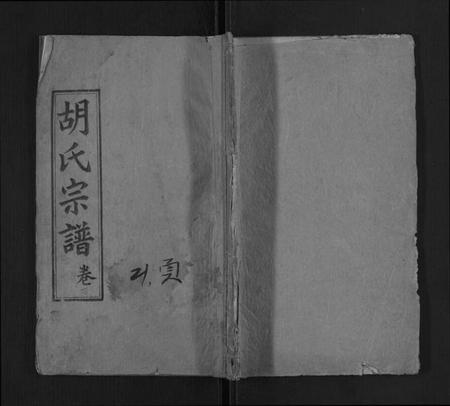 胡氏宗譜卷
21.頁